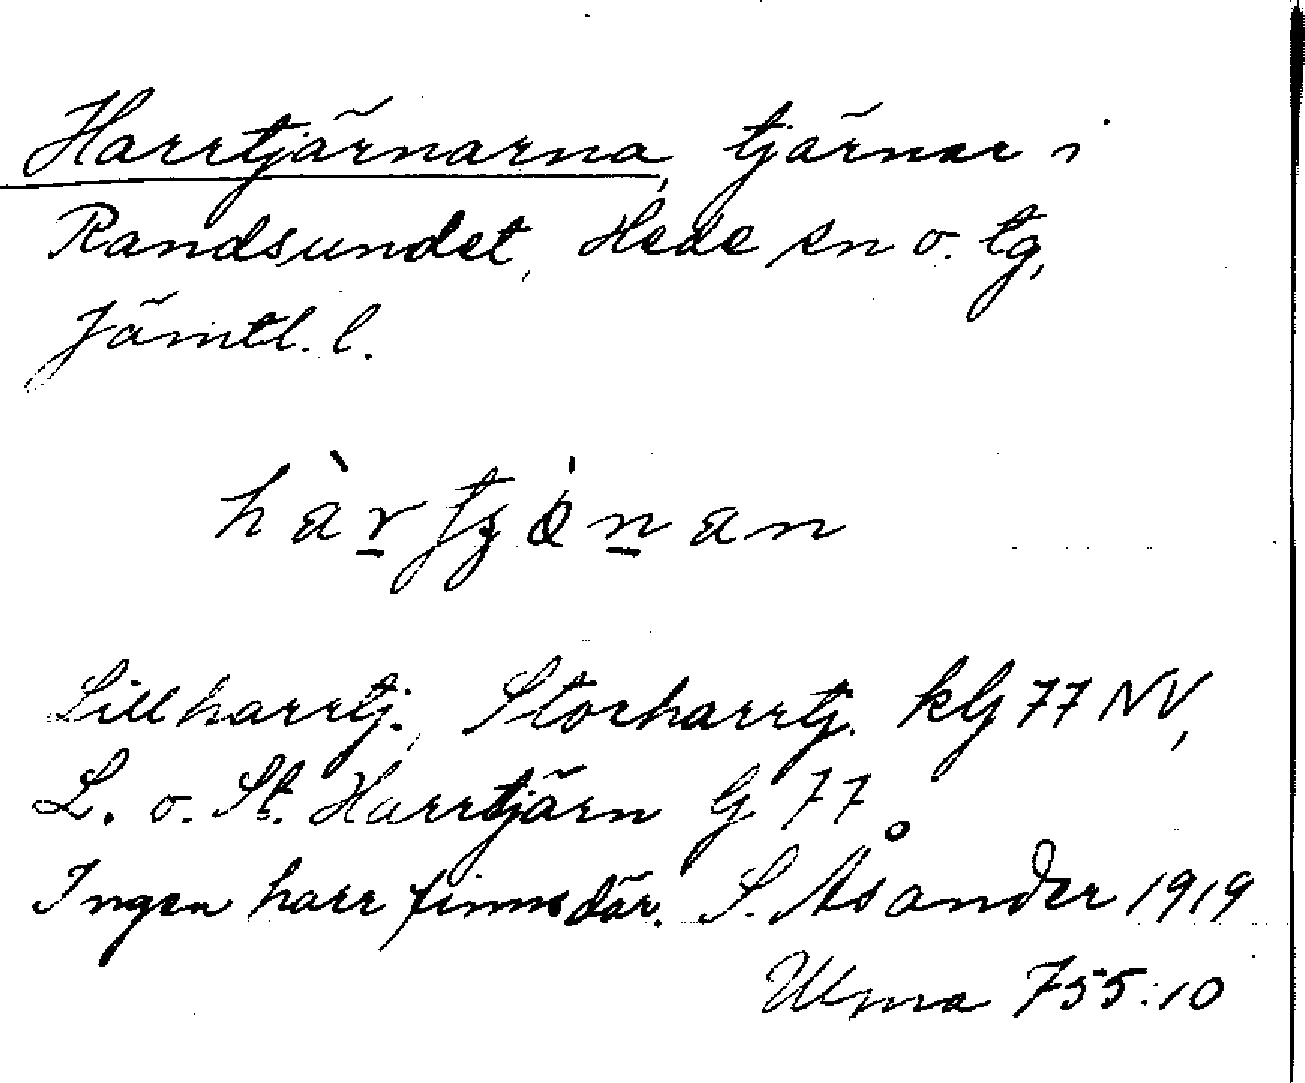 Harrtjärnarna, tjärnar i
Randsundet, Hede sn o. tg,
Jämtl. l.
Lillharrtj., Storharrtj. kG 77 NV,
L. o. St. Harrtjärn G 77
Ingen harr finns där. S. Åsander 1919
Ulma 755:10